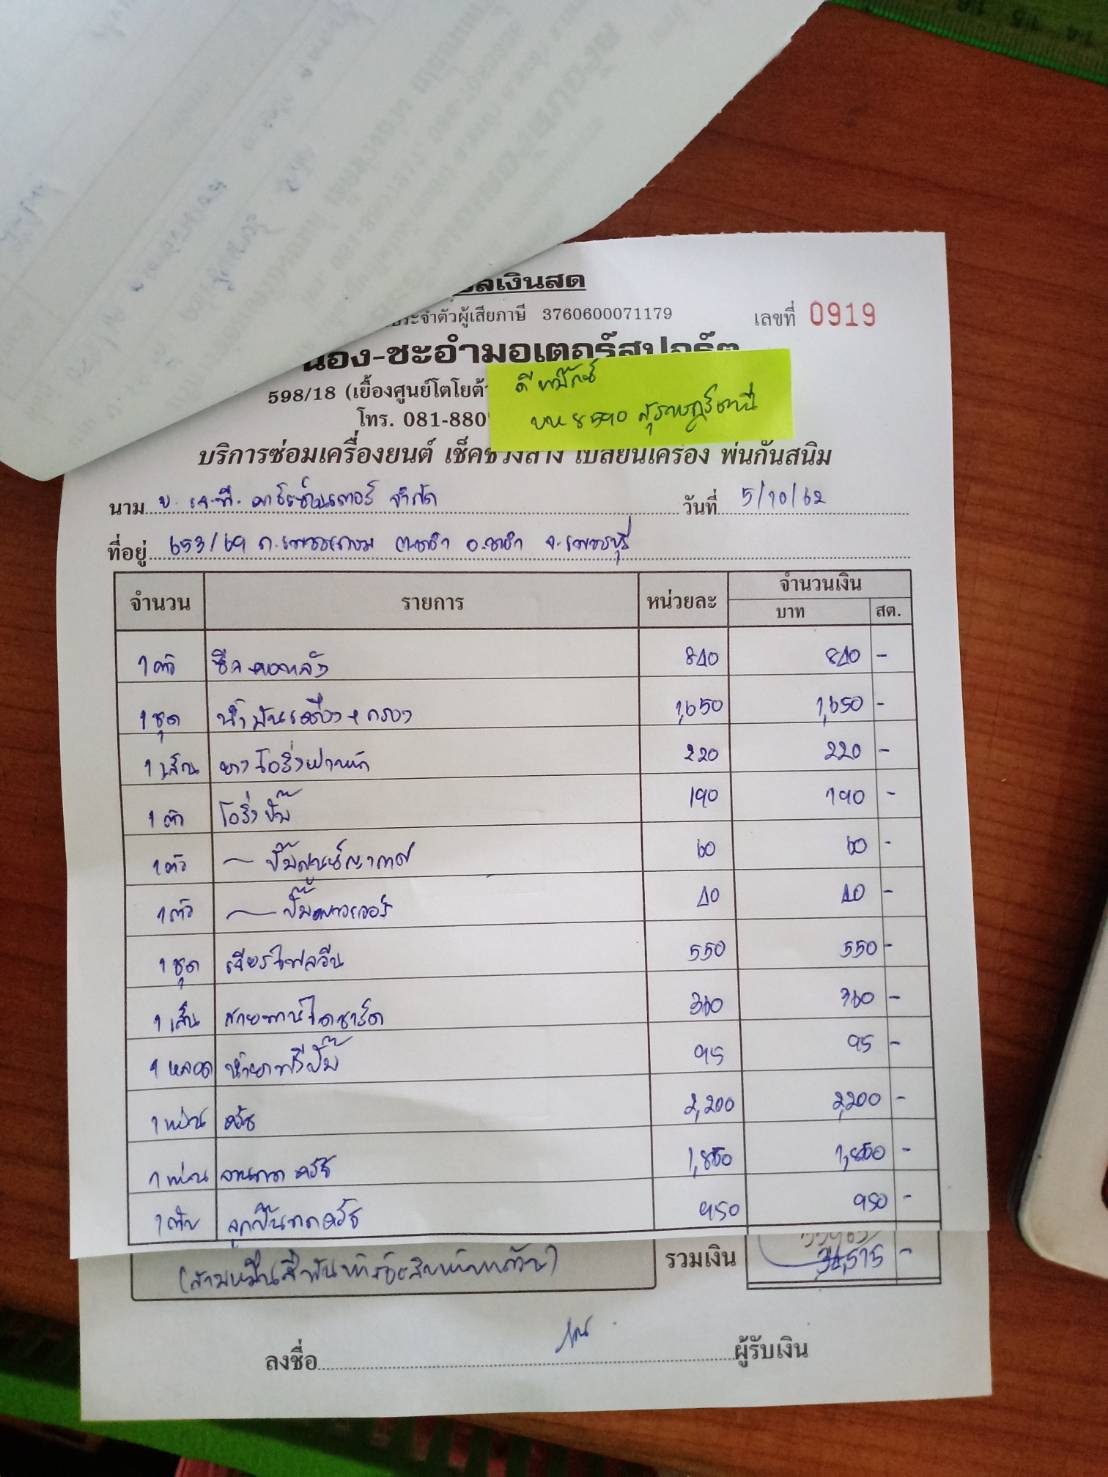 บิลเงินสด
ประจำตัวผู้เสียภาษี 3760600071179
เลขที่ 0919
น้อง-ชะอำมอเตอร์สปอร์ต
598/18 (เยื้องศูนย์โตโยต้า
ดีแม็กซ์
บห 8590 สุราษฎร์ธานี
โทร. 081-880
บริการซ่อมเครื่องยนต์ เช็คช่วงล่าง เปลี่ยนเครื่อง พ่นกันสนิม
นาม บ. เจ.ที. คาร์เซ็นเตอร์ จำกัด วันที่ 5/10/62
ที่อยู่ 653/69 ถ.เพชรเกษม ต.ชะอำ อ.ชะอำ จ.เพชรบุรี
จำนวน รายการ หน่วยละ จำนวนเงิน
บาท สต.
1 ตัว ซีลคอหลัง 840 840 -
1 ชุด น้ำมันเครื่อง+กรอง 1,650 1,650 -
1 เส้น ยางโอริ่งฝาหน้า 220 220 -
1 ตัว โอริ่งปั๊ม 190 190 -
1 ตัว ~ ปั๊มสูญญากาศ 60 60 -
1 ตัว ~ ปั๊มเพาเวอร์ 40 40 -
1 ชุด เฟืองไฟลวีน 550 550 -
1 เส้น สายพานไดชาร์ด 360 360 -
1 หลอด น้ำยาทวีปั๊ม 95 95 -
1 แผ่น ครัช 2,200 2,200 -
1 แผ่น จานกดครัช 1,850 1,850 -
1 ตลับ ลูกปืนกดครัช 950 950 -
(สามหมื่นสี่พันห้าร้อยสิบห้าบาทถ้วน) รวมเงิน 34,515 -
ลงชื่อ ผู้รับเงิน